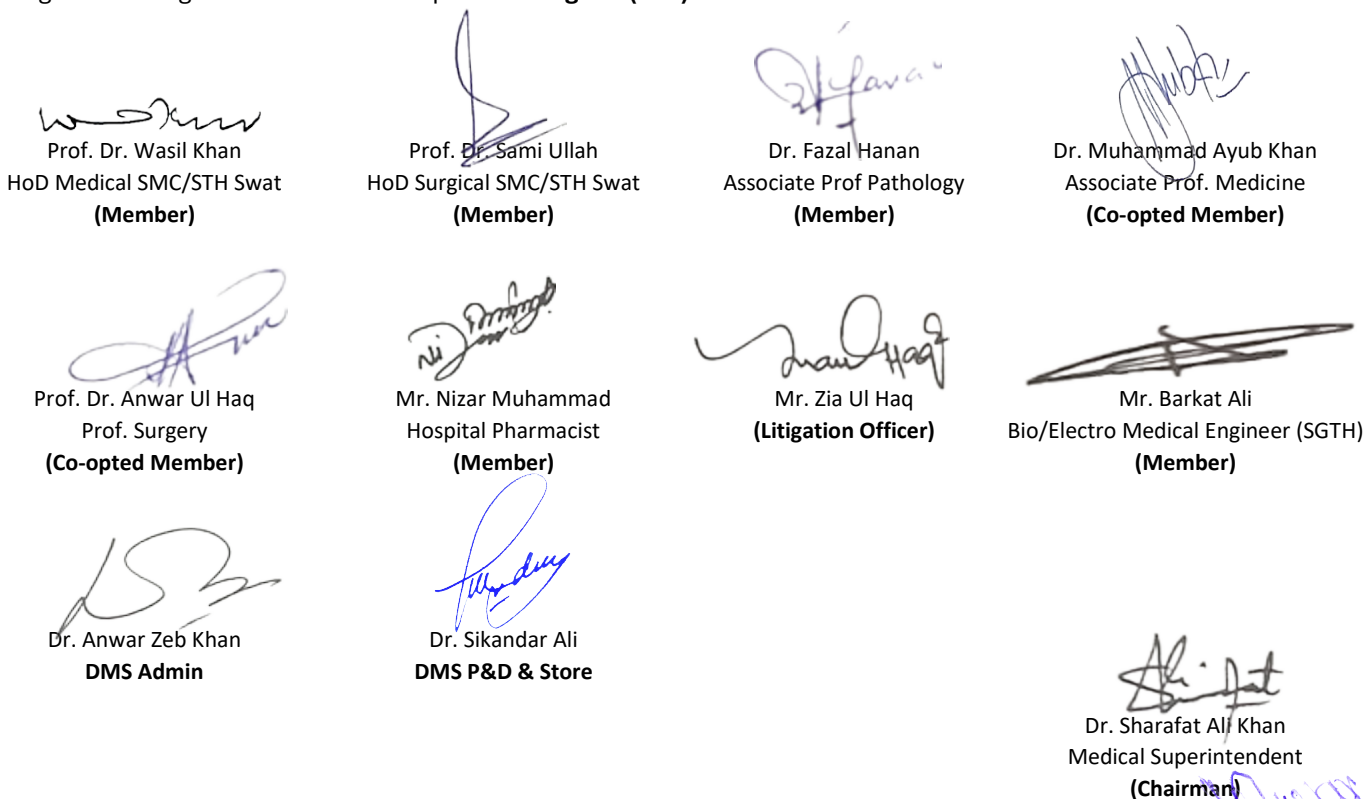 Prof. Dr. Wasil Khan
HoD Medical SMC/STH Swat
(Member)
Prof. Dr. Sami Ullah
HoD Surgical SMC/STH Swat
(Member)
Dr. Fazal Hanan
Associate Prof Pathology
(Member)
Dr. Muhammad Ayub Khan
Associate Prof. Medicine
(Co-opted Member)
Prof. Dr. Anwar Ul Haq
Prof. Surgery
(Co-opted Member)
Mr. Nizar Muhammad
Hospital Pharmacist
(Member)
Mr. Zia Ul Haq
(Litigation Officer)
Mr. Barkat Ali
Bio/Electro Medical Engineer (SGTH)
(Member)
Dr. Anwar Zeb Khan
DMS Admin
Dr. Sikandar Ali
DMS P&D & Store
Dr. Sharafat Ali Khan
Medical Superintendent
(Chairman)